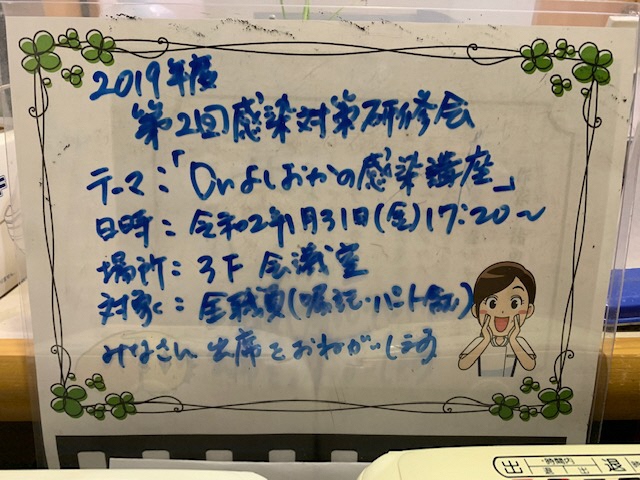 2019年度
第2回感染対策研修会
テーマ：「Drよしおかの感染講座」
日時：令和2年1月31日(金)17:20〜
場所：3F 会議室
対象：全職員(嘱託・パート含)
みなさん 出席をおねがいします
出 時間内 退 出 退